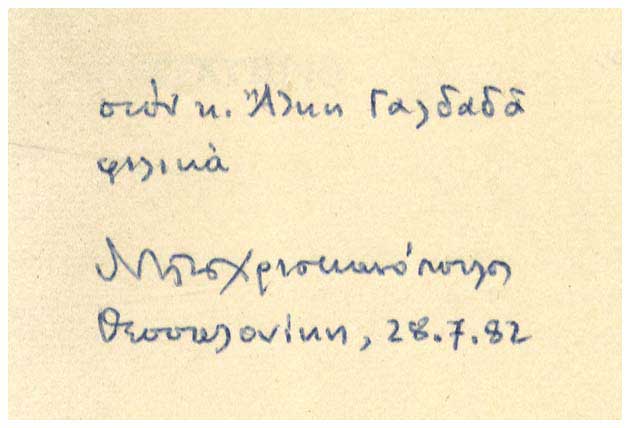 στὸν κ. Ἄλκη Γαλδαδᾶ
φιλικὰ
Ντῖνος Χριστιανόπουλος
Θεσσαλονίκη, 28.7.82